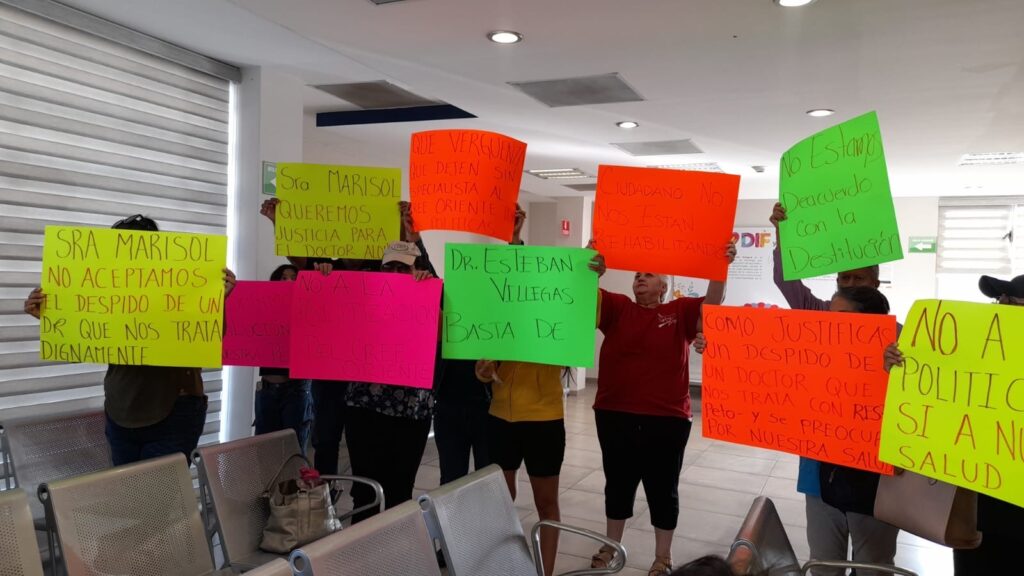 SRA MARISOL
NO ACEPTAMOS
EL DESPIDO DE UN
DR QUE NOS TRATA
DIGNAMENTE
Sra MARISOL
QUEREMOS
JUSTICIA PARA
EL DOCTOR
NO A LA
DEL CREE
ORIENTE
QUE VERGÜENZA
QUE DEJEN SIN
ESPECIALISTA AL
CREE ORIENTE
DR. ESTEBAN
VILLEGAS
BASTA DE
CIUDADANO NO
NOS ESTAN
REHABILITANDO
DIF
No Estamos
Deacuerdo
Con la
Destitución
COMO JUSTIFICA
UN DESPIDO DE
UN DOCTOR QUE
NOS TRATA CON RES
Peto-Y SE PREOCUPA
POR NUESTRA SALUD
NO A
POLITIC
SI A NU
SALUD